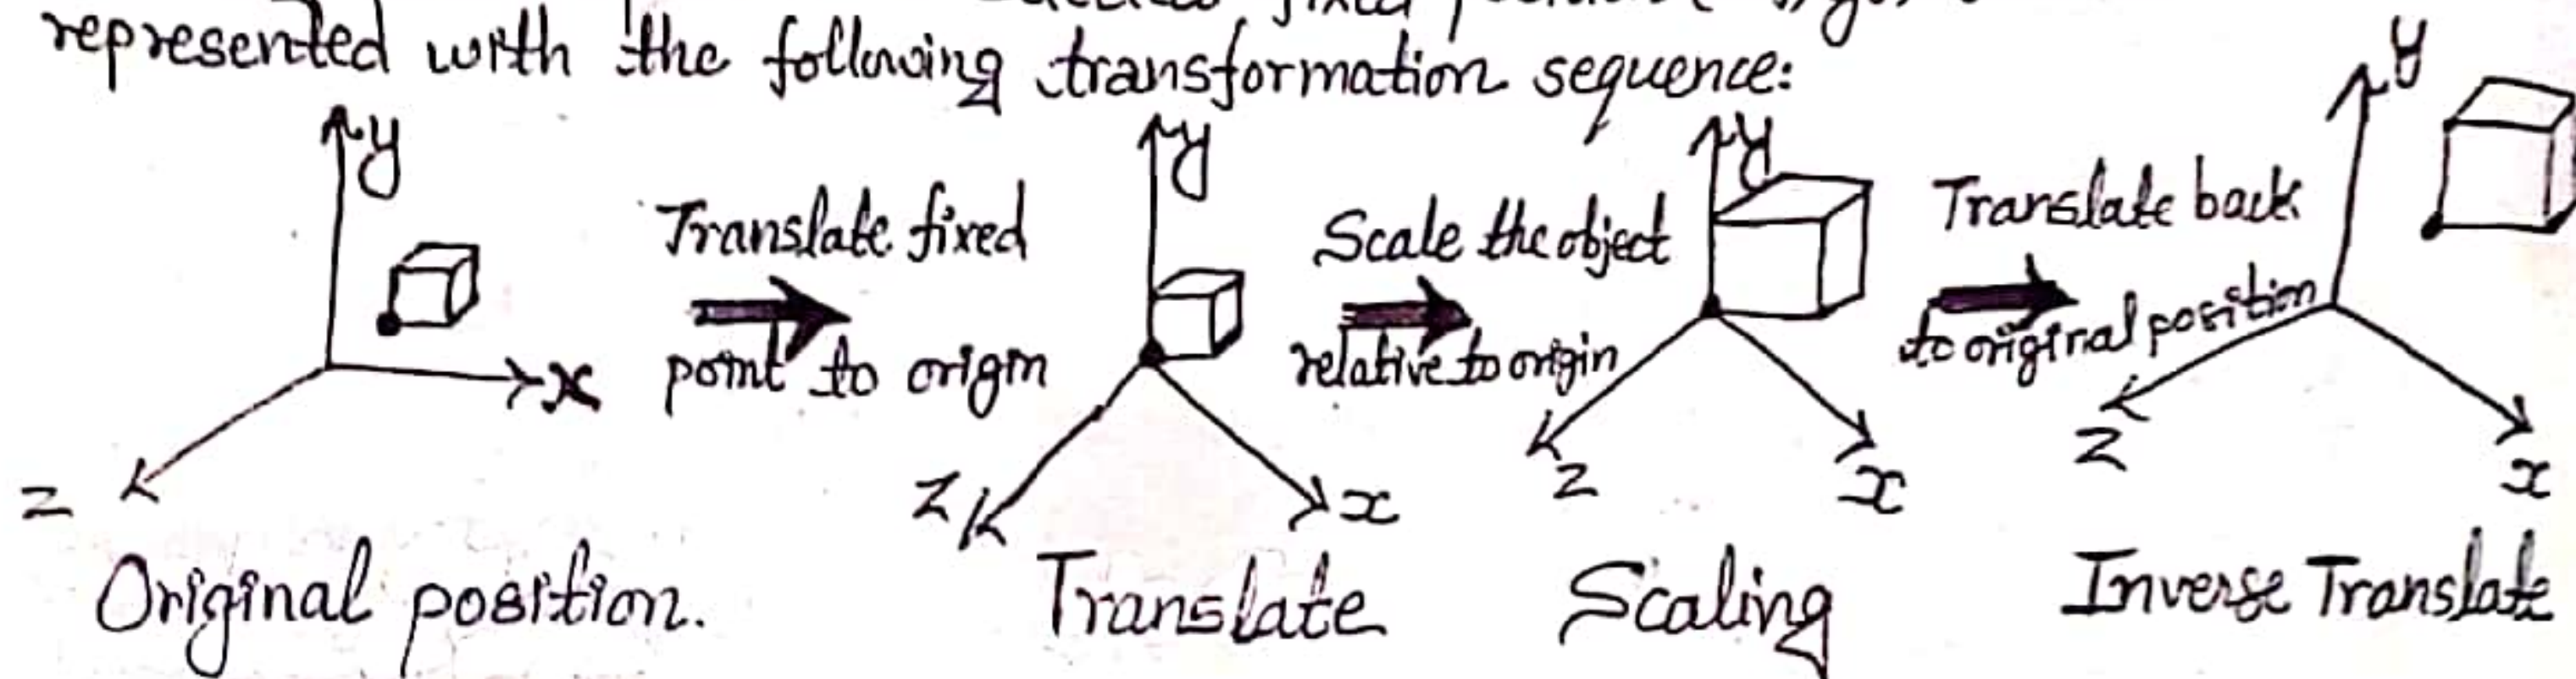 fixed
represented with the following transformation sequence:
y
x
z
Original position.
Translate fixed
point to origin
y
z
x
Translate
Scale the object
relative to origin
y
z
x
Scaling
Translate back
to original position
y
z
x
Inverse Translate